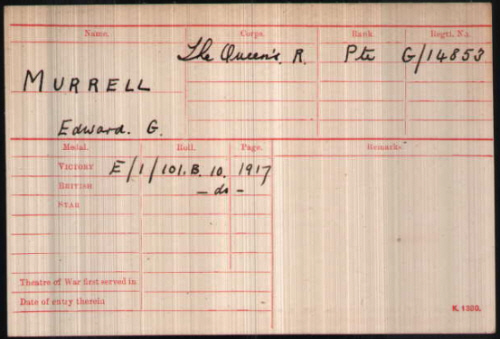 Name. Corps. Rank. Regtl. No.
The Queen's. R. Pte G/14853
MURRELL
Edward. G.
Medal. Roll. Page. Remarks
VICTORY E/1/101.B.10. 1917
BRITISH - do -
STAR
Theatre of War first served in
Date of entry therein
K. 1380.